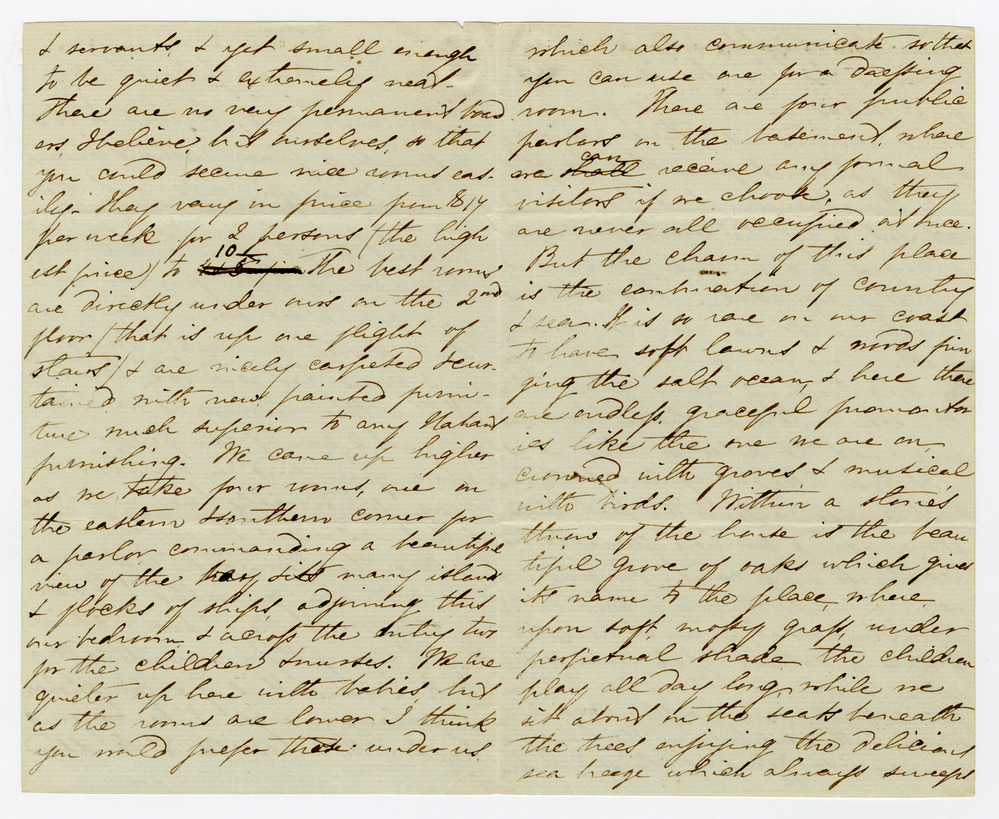 & servants & yet small enough
to be quiet & extremely neat.
There are no very permanent board
ers, I believe, but ourselves, so that
you could secure nice rooms eas-
ily. They vary in price from $14
per week for 2 persons (the high
est price) to 10
The best rooms
are directly under ours on the 2nd
floor (that is up one flight of
stairs) & are nicely carpeted & cur-
tained with new painted furni-
ture much superior to any Nahant
furnishing. We came up higher
as we take four rooms, one on
the eastern & southern corner for
a parlor commanding a beautiful
view of the bay & its many islands
& flocks of ships, adjoining this
our bedroom & across the entry two
for the children & nurses. We are
quieter up here with babies but
as the rooms are lower I think
you would prefer those under us,
which also communicate so that
you can use one for a dressing
room. There are four public
parlors on the basement, where
we shall can receive any formal
visitors if we choose, as they
are never all occupied at once.
But the charm of this place
is the combination of country
& sea. It is so rare on our coast
to have soft lawns & woods frin
ging the salt ocean, & here there
are endless, graceful promontor
ies like the one we are on,
crowned with groves & musical
with birds. Within a stone's
throw of the house is the beau
tiful grove of oaks which gives
its name to the place, where,
upon soft, mossy grass, under
perpetual shade the children
play all day long, while we
sit about on the seats beneath
the trees enjoying the delicious
sea breeze which always sweeps